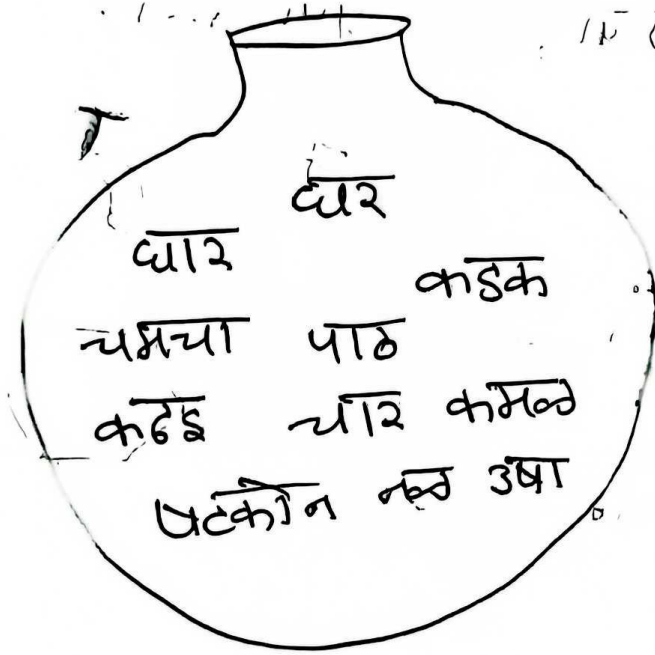 घर
घार
कडक
चमचा पाठ
कढइ चार कमळ
षटकोन नळ उषा